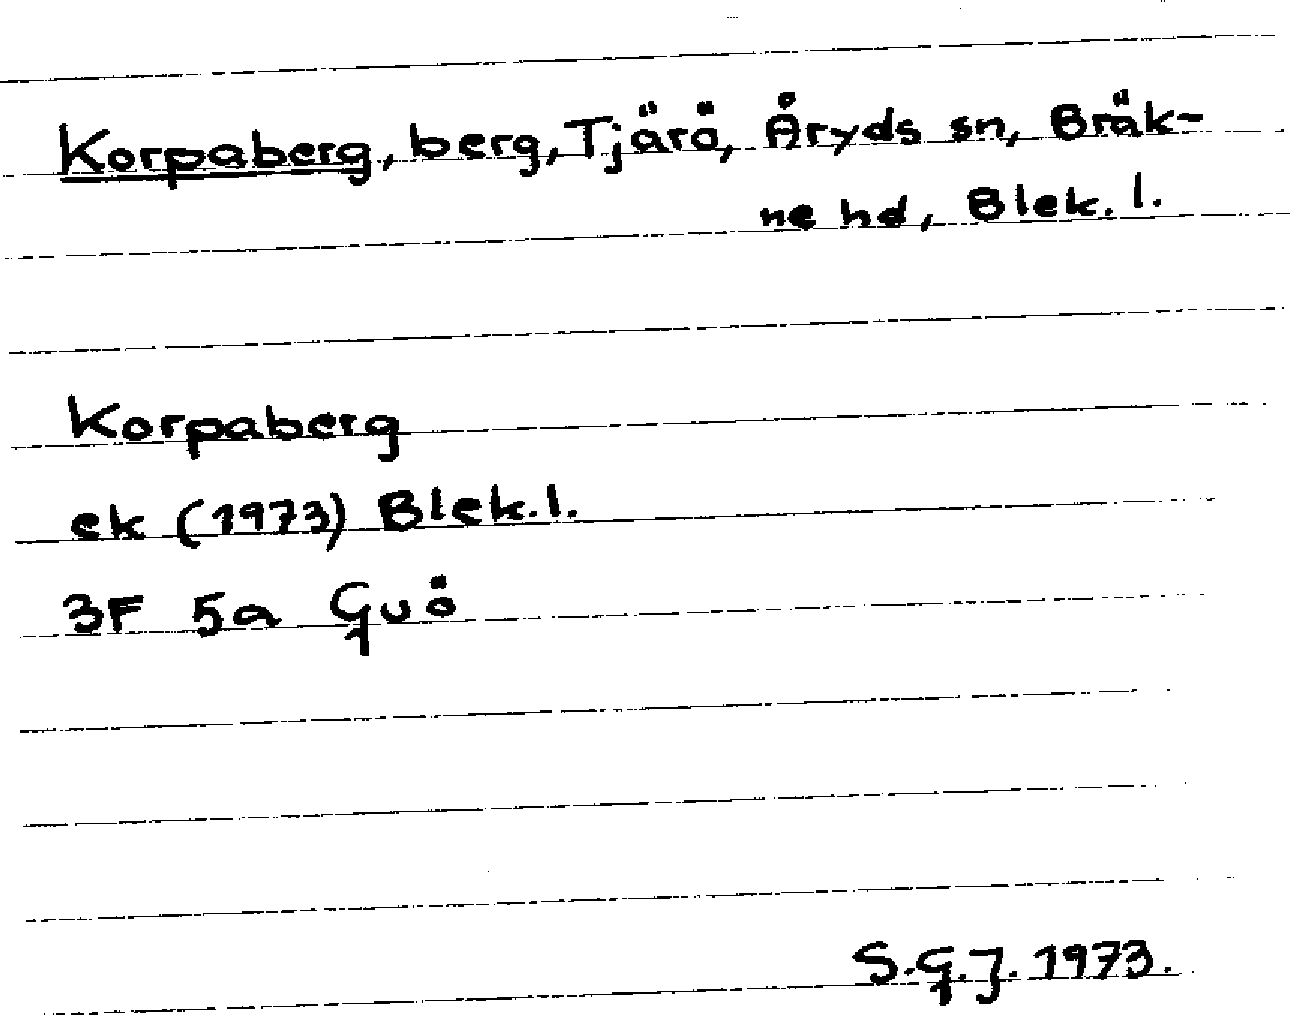 Korpaberg, berg, Tjärö, Åryds sn, Bräk-
ne hd, Blek. l.
Korpaberg
ek (1973) Blek. l.
3F 5a Guö
S.G.J. 1973.